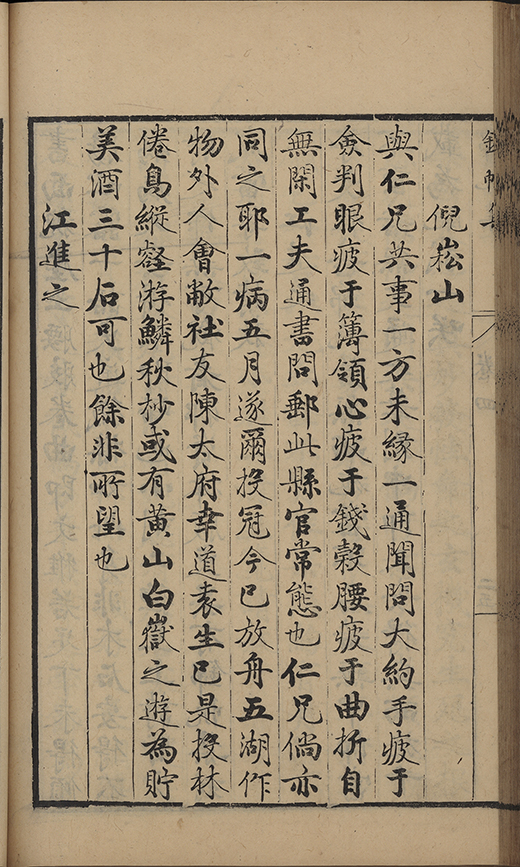 錦帆集
倪崧山
與仁兄共事一方未縁一通聞問大約手疲于
僉判眼疲于簿領心疲于錢穀腰疲于曲折自
無閑工夫通書問郵此縣官常態也仁兄倘亦
同之耶一病五月遂爾投冠今已放舟五湖作
物外人會敝社友陳太府幸道袁生已是投林
倦鳥縱壑游鱗秋杪或有黄山白嶽之遊為貯
美酒三十石可也餘非所望也
江進之